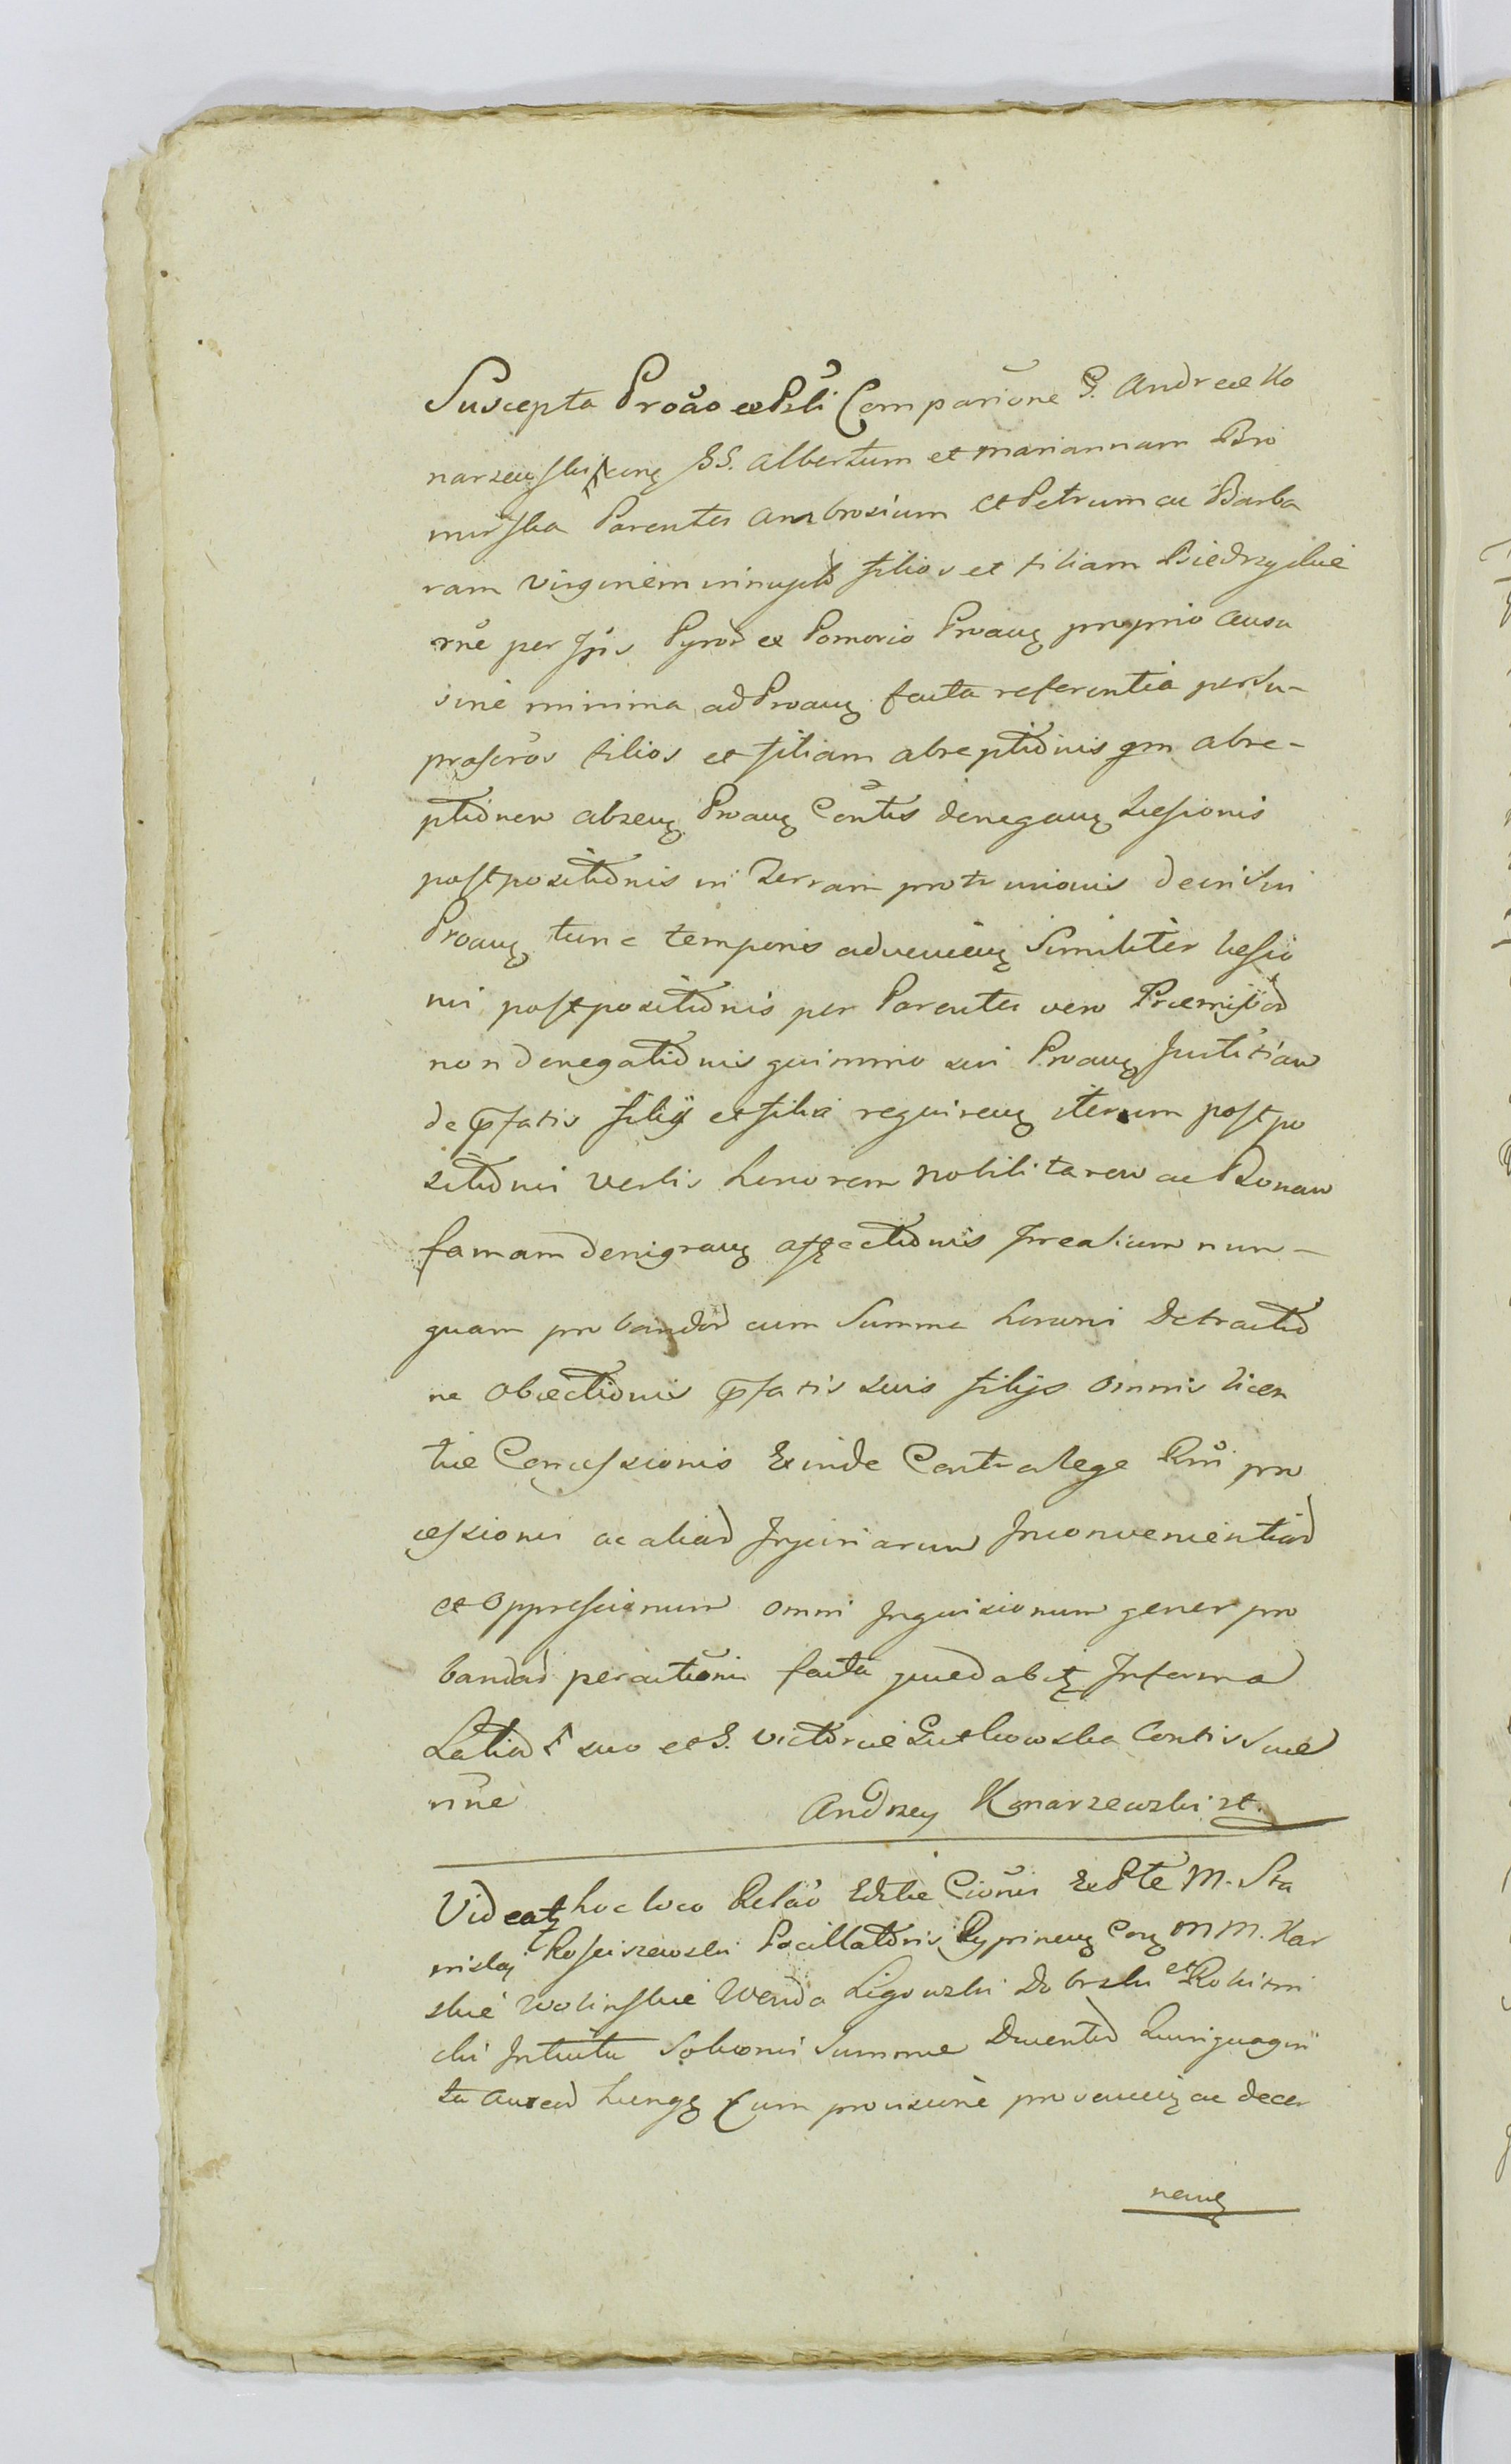 Suscepta Proão ex Psli Compariõne G. Andreae Ko
narzewski SS. Albertum et Mariannam Bro
mirska Parentes Ambrosium et Petrum ac Barba
ram virginem filios et filiam Biedrzyckie
rne per Ipos et Pomorio Proanz proprio ausu
sine minima ad Proanz facta referentia per su-
prascros filios et filiam abreptiõnis qm abre-
ptiõnem abzenz Proanz Contis deneganz Laesionis
postpositiõnis in Terram protrusionis
Proanz tunc temporis advenienz Similiter laesio
nis postpositiõnis per Parentes vero Praemissõ
non denegatiõnis quimmo sui Proanz Justitiam
de pfatis filiis et filia requirenz iterum postpo
sitiõnis verbis honorem nobilitarem ac Bonam
famam denigranz affectiõnis Irealium nun-
quam probandõ cum Summa honoris Detractiõ
ne obiectiõnis pfatis suis filiis omnis licen
tiae Concessionis Exinde Contra lege Rni pro
cessionis ac aliarõ Injuriarum Inconvenientiarõ
et oppressionum omni Inquisicionum gener pro
bandarõ peractiõnis facta quedabitz Informa
Latiorõ suo et G. Victoriae Gutkowska Contis suae
nne
Andrzey Konarzewski
Videatz hoc loco Relaõ Edtae Ciõnis Ex Pte M. Sta
nislaj Rosciszewski Pocillatoris Rypinenz Conz MM. Kar
skie Wolinskie Wenda Ligowski Dobrski et Rokitni
cki Intuitu Soluõnis Summae Ducentõ Quinquagin
ta Aureorõ Hungz Cum provisione provenienz ac decer
nenz